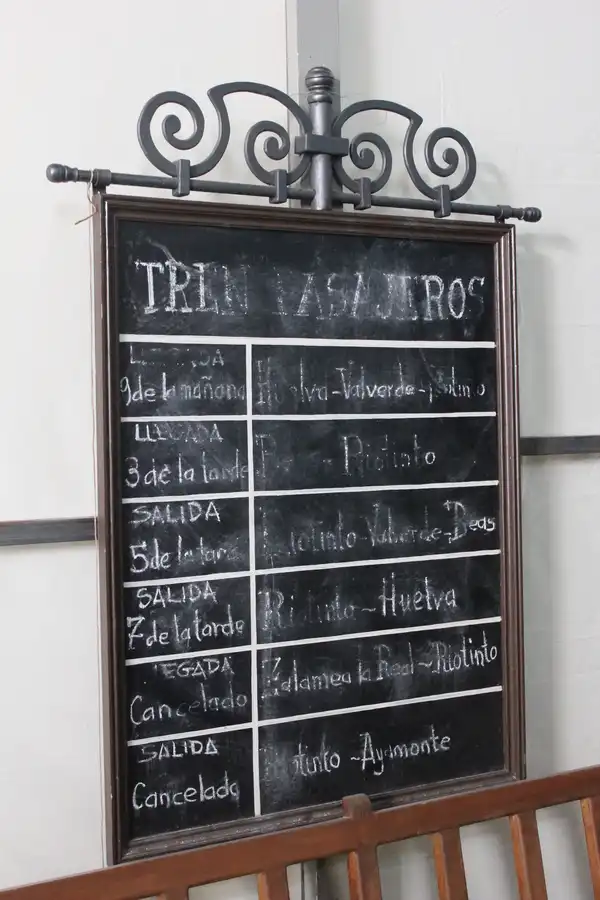 TREN PASAJEROS
LLEGADA
9 de la mañana
Huelva-Valverde-Riotinto
LLEGADA
3 de la tarde
Riotinto
SALIDA
5 de la tarde
Riotinto-Valverde-Beas
SALIDA
7 de la tarde
Riotinto-Huelva
LLEGADA
Cancelado
Zalamea la Real-Riotinto
SALIDA
Cancelado
Riotinto-Ayamonte